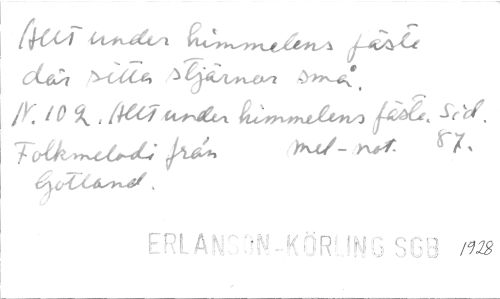 Allt under himmelens fäste
där sitta stjärnor små.
N. 102. Allt under himmelens fäste. Sid. 87.
Folkmelodi från mel-not.
Gotland.
ERLANSON-KÖRLING SGB 1928